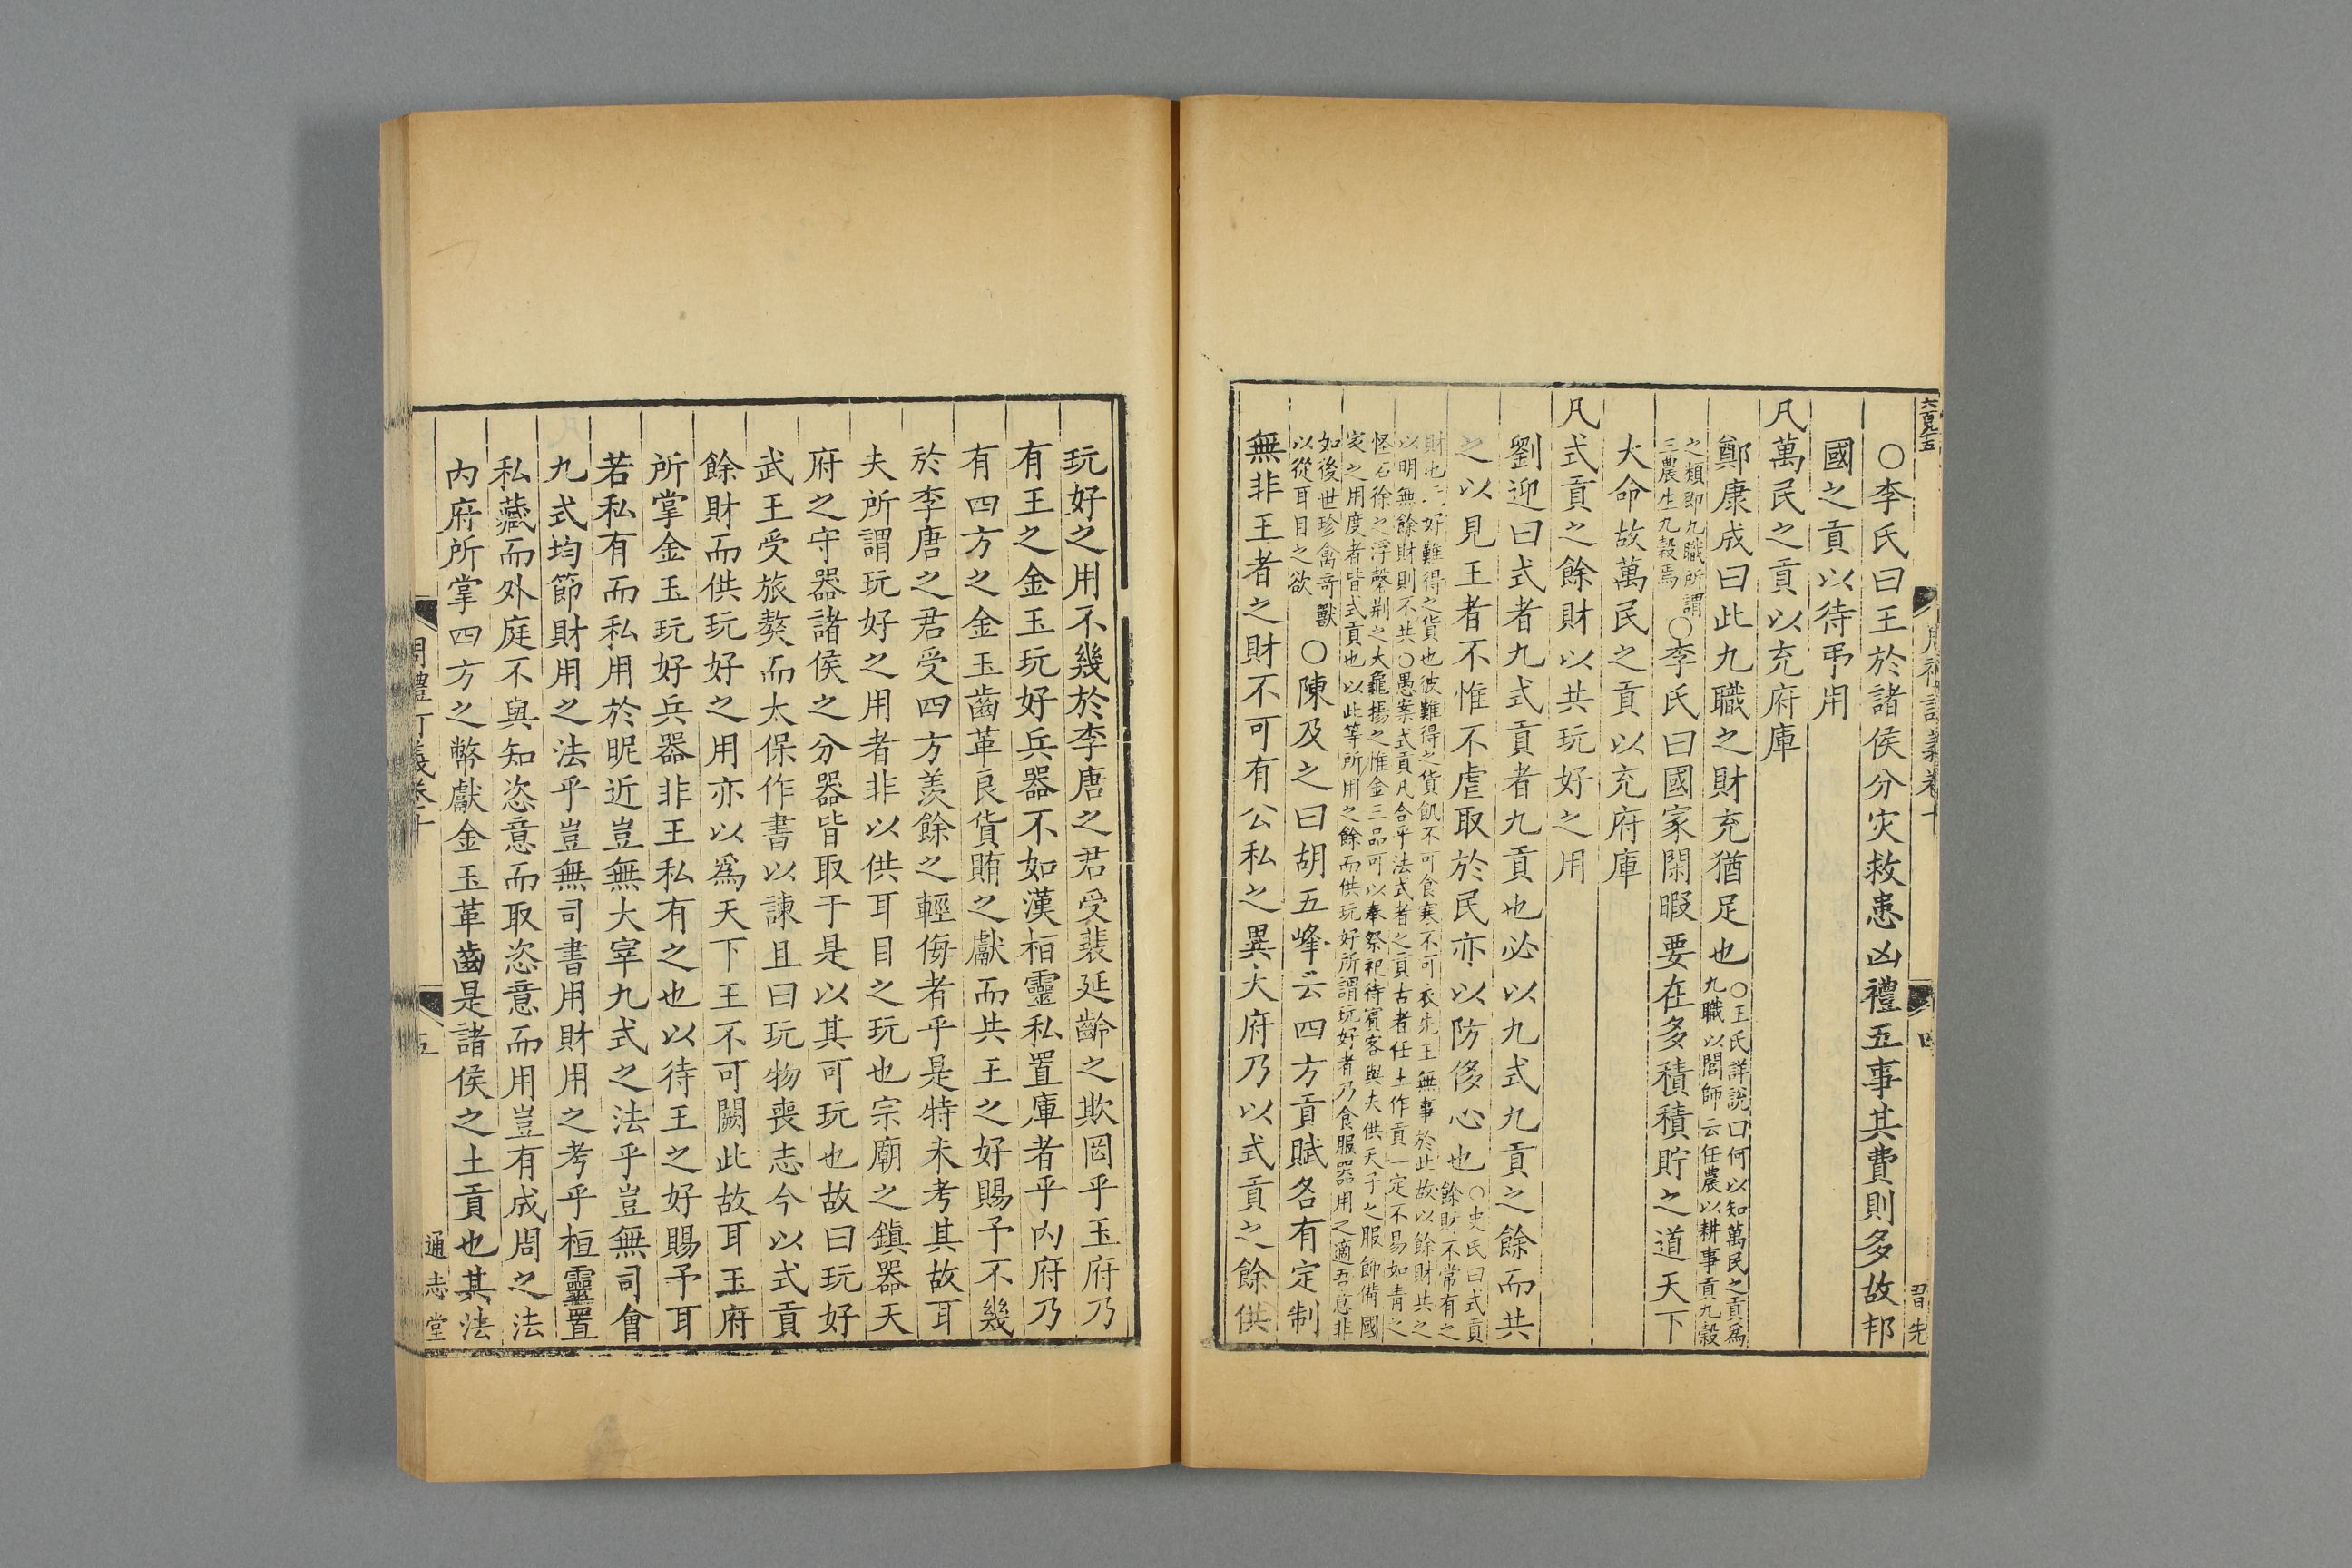 六百九十五
〇李氏曰王於諸侯分灾救患凶禮五事其費則多故邦
國之貢以待弔用
凡萬民之貢以充府庫
鄭康成曰此九職之財充猶足也〇王氏詳說曰何以知萬民之貢爲
九職以閭師云任農以耕事貢九穀
之類即九職所謂
三農生九穀焉〇李氏曰國家閑暇要在多積積貯之道天下
大命故萬民之貢以充府庫
凡式貢之餘財以共玩好之用
劉迎曰式者九式貢者九貢也必以九式九貢之餘而共
之以見王者不惟不虐取於民亦以防侈心也〇史氏曰式貢
餘財不常有之
財也玩好難得之貨也彼難得之貨飢不可食寒不可衣先王無事於此故以餘財共之
以明無餘財則不共〇愚案式貢凡合乎法式者之貢古者任土作貢一定不易如青之
怪石徐之浮磬荆之大龜揚之惟金三品可以奉祭祀待賓客與夫供天子之服飾備國
家之用度者皆式貢也以此等所用之餘而供玩好所謂玩好者乃食服器用之適吾意非
如後世珍禽奇獸
以從耳目之欲〇陳及之曰胡五峰云四方貢賦各有定制
無非王者之財不可有公私之異大府乃以式貢之餘供
四
君先
玩好之用不幾於李唐之君受裴延齡之欺罔乎玉府乃
有王之金玉玩好兵器不如漢栢靈私置庫者乎内府乃
有四方之金玉齒革良貨賄之獻而共王之好賜予不幾
於李唐之君受四方羨餘之輕侮者乎是特未考其故耳
夫所謂玩好之用者非以供耳目之玩也宗廟之鎮器天
府之守器諸侯之分器皆取于是以其可玩也故曰玩好
武王受旅獒而太保作書以諫且曰玩物喪志今以式貢
餘財而供玩好之用亦以爲天下王不可闕此故耳玉府
所掌金玉玩好兵器非王私有之也以待王之好賜予耳
若私有而私用於昵近豈無大宰九式之法乎豈無司會
九式均節財用之法乎豈無司書用財用之考乎桓靈置
私藏而外庭不與知恣意而取恣意而用豈有成周之法
内府所掌四方之幣獻金玉革齒是諸侯之土貢也其法
周禮訂義卷十
五
通志堂